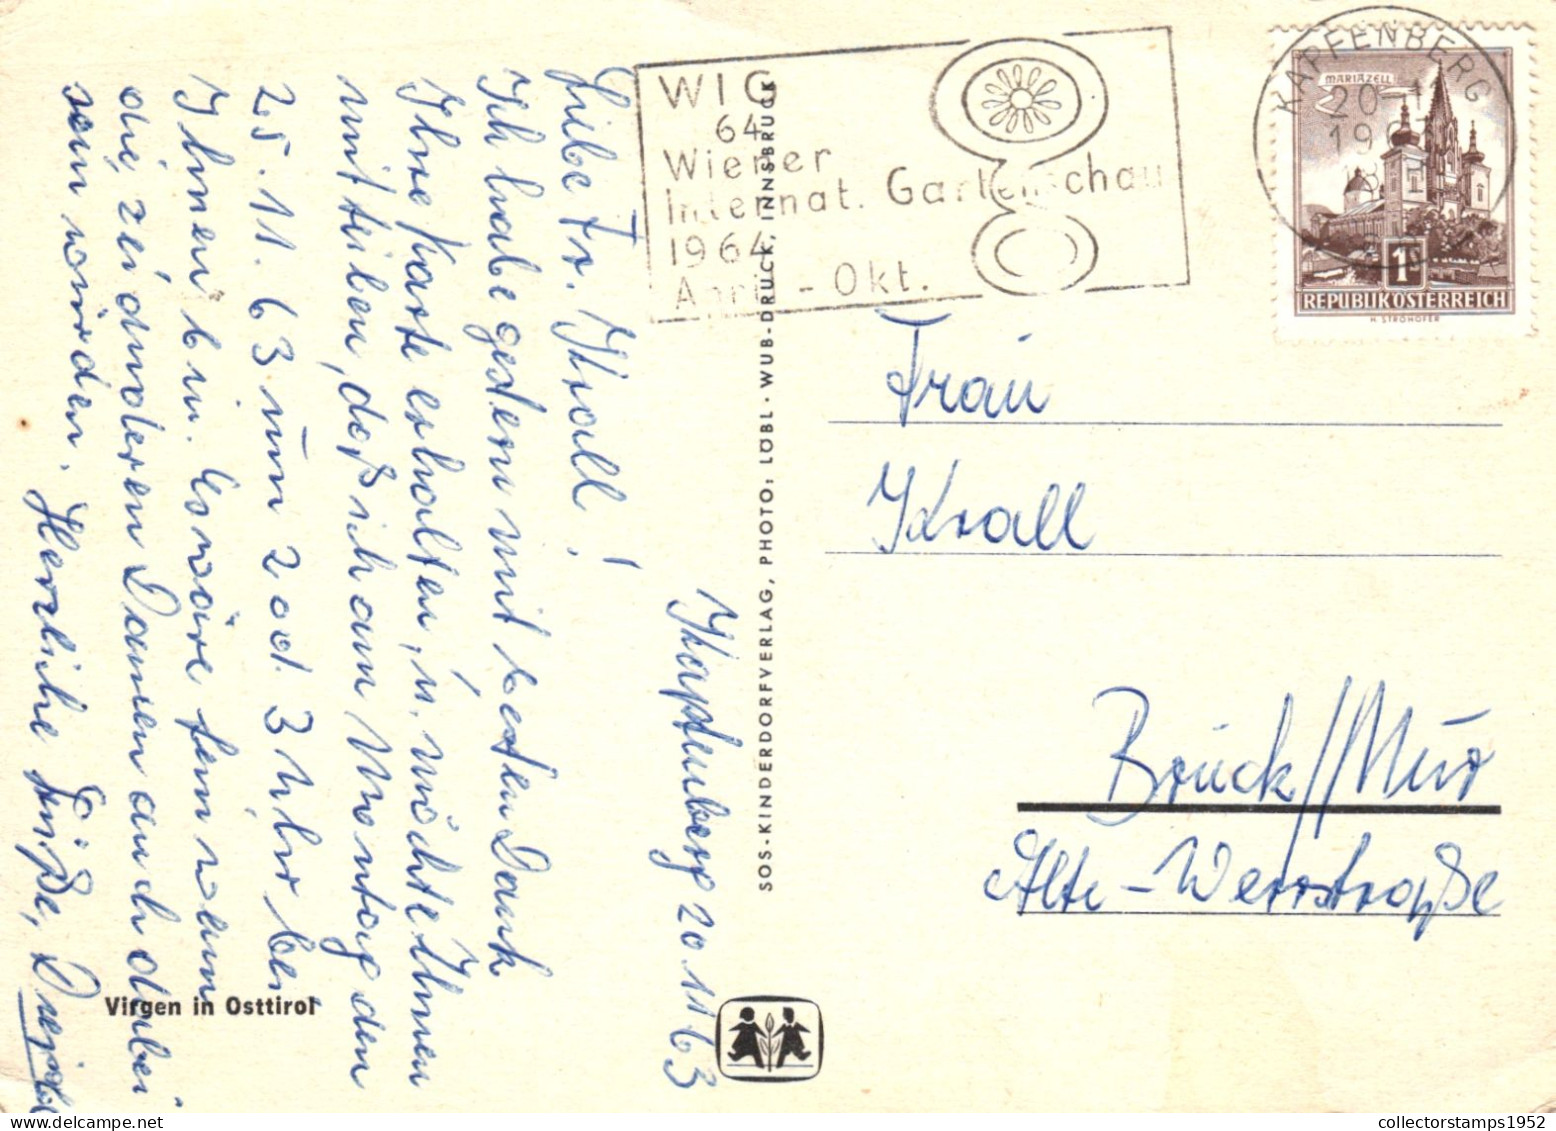 WIG
64
Wiener
Internat. Gartenschau
1964
April - Okt.
KAPFENBERG
20-11
19
8
MARIAZELL
1
REPUBLIK ÖSTERREICH
H. STROHOFER
Kapfenberg 20.11.63
Liebe Fr. Krall!
Ich habe gestern mit besten Dank
Ihre Karte erhalten, u. möchte Ihnen
mitteilen, daß ich am Montag den
25.11.63 um 3 Uhr bei
Ihnen bin. Es wäre fein wenn
die anderen Damen auch dabei
sein würden. Herzliche Grüße,
Frau
Krall
Bruck/Mur
Alte-Werrstraße
SOS-KINDERDORFVERLAG, PHOTO: LÖBL · WUB-DRUCK, INNSBRUCK
Virgen in Osttirol
collectorstamps1952